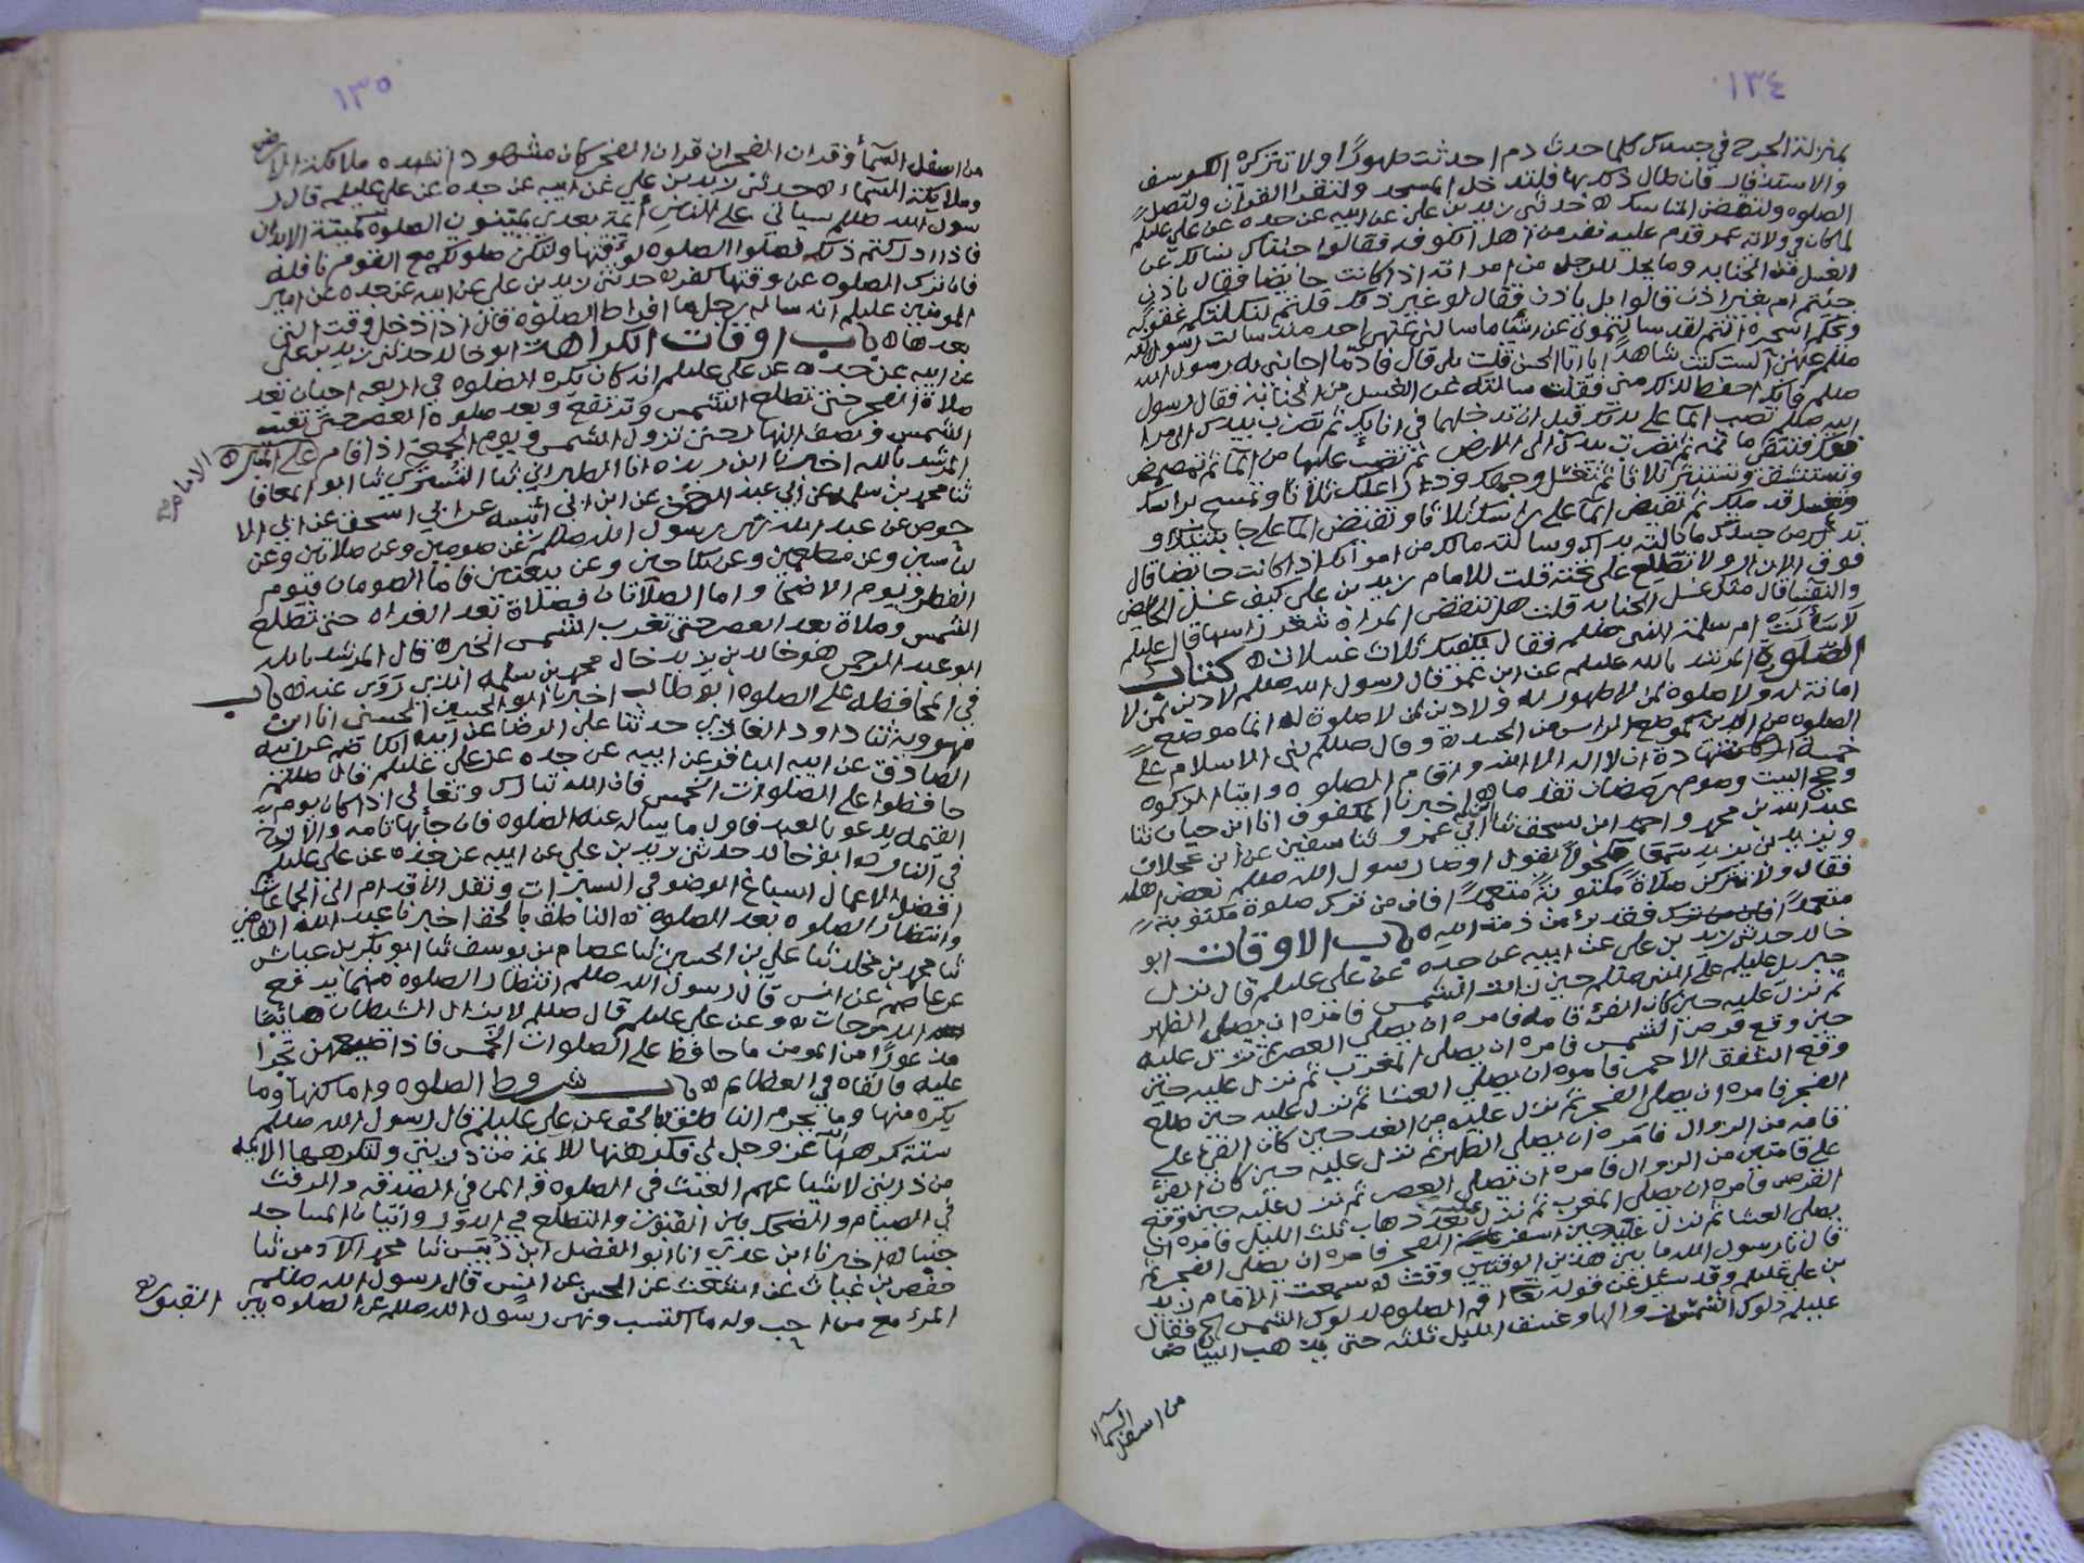 ١٣٤
بمنزلة الجرح في جسدك كلما حدث دم احدثت طهورًا ولا تتركي الكرسف
والاستذفار فان طال ذلك بها فلتدخل المسجد ولتقرا القرآن ولتصل
الصلوه ولتقض المناسك ٥ حدثني زيد بن علي عن ابيه عن جده عن علي عليلم
لما كان في ولاية عمر قدم عليه نفر من اهل الكوفه فقالوا جئناك نسالك عن
الغسل من الجنابه وما يحل للرجل من امراته اذا كانت حايضا فقال باذن
جئتم ام بغير اذن قالوا بل باذن فقال لو غير ذلك قلتم لنكلتكم عقوبة
ويحكم اسحرة انتم لقد سالتموني عن اشيا ما سالني عنهن احد منذ سالت رسول الله
صللم عنهن الست كنت شاهدًا يا ابا الحسن قلت بلى قال فاد ما اجابني به رسول الله
صللم فانك احفظ لذلك مني فقلت سالته عن الغسل من الجنابة فقال رسول
الله صللم تصب الما على يديك قبل ان تدخلهما في انايك ثم تضرب بيدك الى مرا
فقك فتنقي ما ثمه ثم تضرب بيدك الى الارض ثم تصب عليها من الما ثم تمضمض
وتستنشق وتستنثر ثلاثا ثم تغسل وجهك وذراعيك ثلاثا وتمسح براسك
وتغسل قدميك ثم تفيض الما على راسك ثلاثا وتفيض الما على جانبيك و
تدلك من جسدك ما نالته يداك وسالته مالك من امراتك اذا كانت حايضا قال
فوق الازار ولا تطلع على تحته قلت للامام زيد بن علي كيف غسل الحايض
والنفسا قال مثل غسل الجنابه قلت هل تنقض المراة شعر راسها قال عليلم
لا سالت ام سلمة النبي صللم فقال يكفيك ثلاث غسلات ٥ كتاب
الصلوة المرشد بالله عليلم عن ابن عمر قال رسول الله صللم لا دين لمن لا
امانة له ولا صلوة لمن لا طهور له ولا دين لمن لا صلوة له انما موضع
الصلوه من الدين كموضع الراس من الجسد ٥ وقال صللم بني الاسلام على
خمسة شهادة ان لا اله الا الله واقام الصلوه وايتا الزكوه
وحج البيت وصوم رمضان اخبرنا المكفوف انا ابن حيان ثنا
عبد الله بن محمد واحمد ابن اسحق ثنا ابي عمرو ثنا سفين عن ابن عجلان
ويزيد بن يزيد سمعا مكحولا يقول اوصا رسول الله صللم بعض اهله
فقال ولا تتركن صلاة مكتوبة متعمدًا فان من ترك صلوة مكتوبة
متعمدًا فقد برئ من ذمة الله ٥ باب الاوقات ابو
خالد حدثني زيد بن علي عن ابيه عن جده عن علي عليلم قال نزل
جبريل عليلم على النبي صللم حين زالت الشمس فامره ان يصلي الظهر
ثم نزل عليه حين كان الفئ قامه فامره ان يصلي العصر ثم نزل عليه
حين وقع قرص الشمس فامره ان يصلي المغرب ثم نزل عليه حين
وقع الشفق الاحمر فامره ان يصلي العشا ثم نزل عليه حين طلع
الفجر فامره ان يصلي الفجر ثم نزل عليه من الغد حين كان الفئ على
قامه من الزوال فامره ان يصلي الظهر ثم نزل عليه حين كان الفئ
على قامتين من الزوال فامره ان يصلي العصر ثم نزل عليه حين وقع
القرص فامره ان يصلي المغرب ثم نزل عليه بعد ذهاب ثلث الليل فامره ان
يصلي العشا ثم نزل عليه حين اسفر الفجر فامره ان يصلي الفجر ثم
قال يا رسول الله ما بين هذين الوقتين وقت ٥ سمعت الامام زيد
بن علي عليلم وقد سئل عن قوله تعا اقم الصلوه لدلوك الشمس الخ فقال
عليلم دلوك الشمس زوالها وغسق الليل ثلثه حتى يذهب البياض
من اسفل السماء
١٣٥
من اسفل السمآء وقران الفجر ان قران الفجر كان مشهودا تشهده ملائكة الارض
وملايكة السمآء ٥ حدثني زيد بن علي عن ابيه عن جده عن علي عليلم قال ر
سول الله صللم سياتي على الناس أئمة بعدي يميتون الصلوة كميتة الابدان
فاذا ادركتم ذلك فصلوا الصلوه لوقتها ولتكن صلوتكم مع القوم نافلة
فان ترك الصلوه عن وقتها كفر ٥ حدثني زيد بن علي عن ابيه عن جده عن امير
المومنين عليلم انه ساله رجل ما افراط الصلوة قال اذا دخل وقت التي
بعدها ٥ باب اوقات الكراهة ابو خالد حدثني زيد بن علي
عن ابيه عن جده عن علي عليلم انه كان يكره الصلوة في اربعه احيان بعد
صلاة الفجر حتى تطلع الشمس وترتفع وبعد صلوة العصر حتى تغيب
الشمس ونصف النهار حتى تزول الشمس ويوم الجمعة اذا قام على المنبر ٥ الامام
المرشد بالله اخبرنا ابن ريذه انا الطبراني ثنا التستري ثنا ابو المعافا
ثنا محمد بن سلمه عن ابي عبد الرحمن عن ابن ابي أنيسه عن ابي اسحق عن ابي الا
حوص عن عبد الله نهى رسول الله صللم عن صومين وعن صلاتين وعن
لباسين وعن مطعمين وعن نكاحين وعن بيعتين فاما الصومان فيوم
الفطر ويوم الاضحا واما الصلاتان فصلاة بعد الغداه حتى تطلع
الشمس وصلاة بعد العصر حتى تغرب الشمس الخبر ٥ قال المرشد بالله
ابو عبد الرحمن هو خالد بن يزيد خال محمد بن سلمه الذي روى عنه ٥ باب
في المحافظه على الصلوه ابو طالب اخبرنا ابو الحسين الحسني انا ابن
مهرويه ثنا داود الغازي حدثنا علي الرضا عن ابيه الكاظم عن ابيه
الصادق عن ابيه الباقر عن ابيه عن جده عن علي عليلم قال صللم
حافظوا على الصلوات الخمس فان الله تبارك وتعالى اذا كان يوم
القيمه يدعو بالعبد فاول ما يساله عنه الصلوه فان جأ بها تامه والا زخ
في النار ٥ ابو خالد حدثني زيد بن علي عن ابيه عن جده عن علي عليلم
افضل الاعمال اسباغ الوضو في السبرات ونقل الاقدام الى الجماعات
وانتظار الصلوه بعد الصلوه ٥ الناطق بالحق اخبرنا عبد الله القاضي
ثنا محمد بن مخلد ثنا علي بن الحسين ثنا عصام بن يوسف ثنا ابو بكر بن عياش
عن عاصم عن انس قال رسول الله صللم انتظار الصلوه مما يرفع
الله الدرجات ٥ وعن علي عليلم قال صللم لا يزال الشيطان هائبًا
مذعورًا من المومن ما حافظ على الصلوات الخمس فاذا ضيعهن تجرا
عليه فالقاه في العظايم ٥ باب شروط الصلوه واماكنها وما
يكره منها وما يحرم الناطق بالحق عن علي عليلم قال رسول الله صللم
ستة كرهها الله عز وجل لي فكرهتها للائمه من ذريتي ولتكرهها الايمه
من ذريتي لاشياعهم العبث في الصلوه والمن في الصدقه والرفث
في الصيام والضحك بين القبور والتطلع في الدور واتيان المساجد
جنبا ٥ اخبرنا ابن عدي انا ابو المفضل ابن ثنا محمد ثنا
حفص بن غياث عن اشعث عن الحسن عن انس قال رسول الله صللم
المرء مع من احب وله ما اكتسب ونهى رسول الله صللم عن الصلوه بين القبور ٥